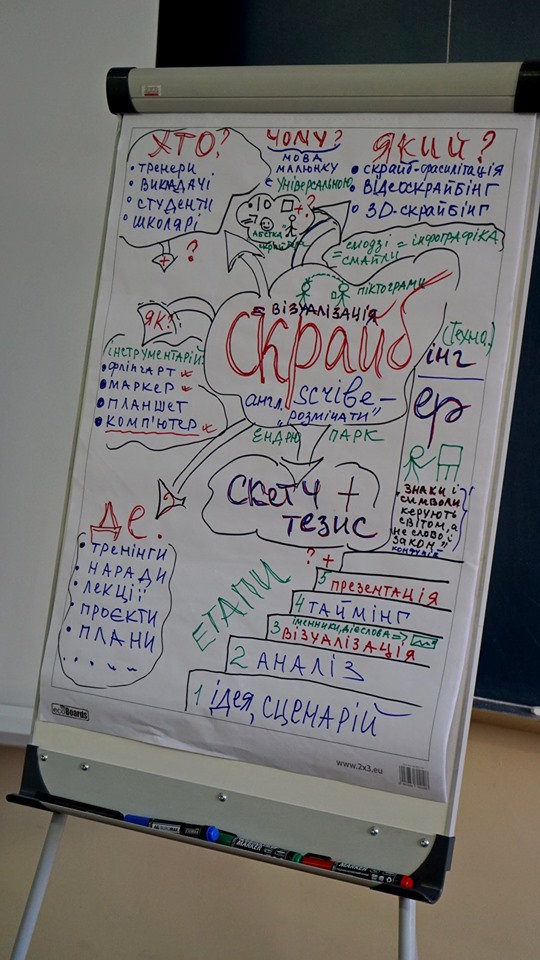 ХТО?
• тренери
• викадачі
• студенти
• школярі
+ ?
ЧОМУ?
мова
малюнку
є універсальною
+ ?
абетка
ЯКИЙ?
• скрайб-фасилітація
• відеоскрайбінг
• 3D-скрайбінг
= емодзі = інфографіка
= смайли
піктограми
= візуалізація
Скрайб
англ. scribe –
„розмічати"
Ендрю Парк
(техно.)
інг
ер
ЯК?
інструментарій:
• фліпчарт
• маркер
• планшет
• комп'ютер
скетч +
тезис
знаки і
символи
керують
світом, а
не слово і
закон"
конфуцій
?
ДЕ.
• тренінги
• наради
• лекції
• проєкти
• плани
ЕТАПИ
? +
5 презентація
4 таймінг
іменники, дієслова =>
3 візуалізація
2 аналіз
1 ідея, сценарій
ecoBoards
www.2x3.eu
2x3
MARKER
MARKER